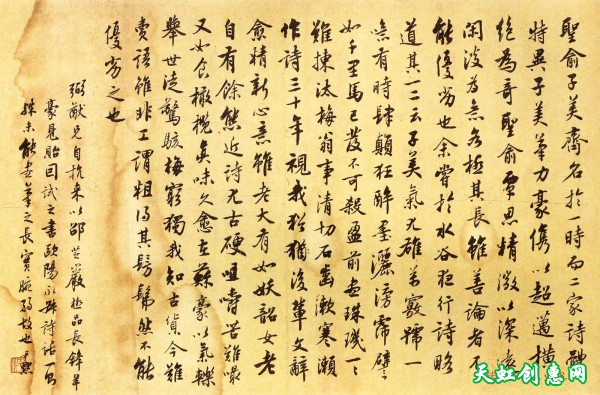 聖俞子美齊名於一時而二家詩體
特異子美筆力豪儁以超邁橫
絕為奇聖俞覃思精微以深遠
閑淡為意各極其長雖善論者不
能優劣也余嘗於水谷夜行詩略
道其一二云子美氣尤雄萬竅號一
噫有時肆顛狂醉墨灑滂霈譬
如千里馬已發不可殺盈前盡珠璣一一
難揀汰梅翁事清切石齒漱寒瀨
作詩三十年視我猶後輩文辭
愈精新心意雖老大有如妖韶女老
自有餘態近詩尤古硬咀嚼苦難嘬
又如食橄欖真味久愈在蘇豪以氣轢
舉世徒驚駭梅窮獨我知古貨今難
賣語雖非工謂粗得其髣髴然不能
優劣之也
猷兄自杭來以邵芝巖極品長鋒羊
豪見貽回試之書歐陽永叔詩話一
殊未能盡筆之長實腕弱故也 尹默
天虹创惠网